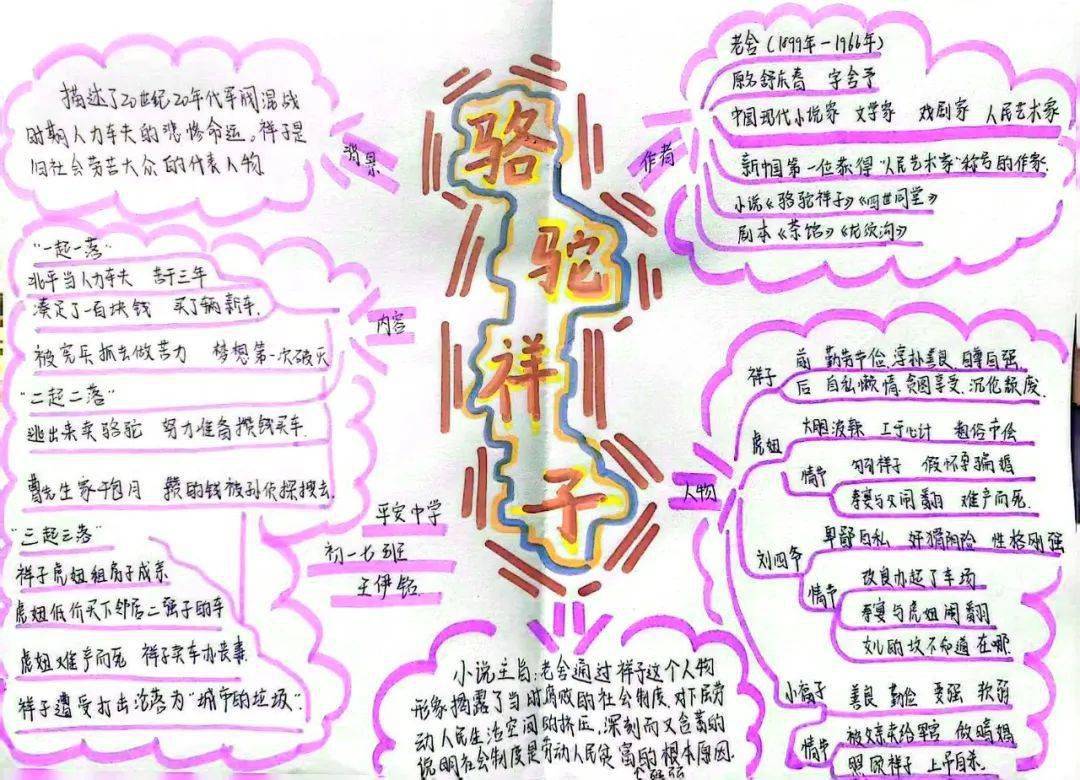 骆驼祥子
背景
描述了20世纪20年代军阀混战
时期人力车夫的悲惨命运,祥子是
旧社会劳苦大众的代表人物
作者
老舍(1899年-1966年)
原名舒庆春 字舍予
中国现代小说家 文学家 戏剧家 人民艺术家
新中国第一位获得"人民艺术家"称号的作家.
小说《骆驼祥子》《四世同堂》
剧本《茶馆》《龙须沟》
内容
"一起一落"
北平当人力车夫 苦干三年
凑足了一百块钱 买了辆新车.
被宪兵抓去做苦力 梦想第一次破灭
"二起二落"
逃出来卖骆驼 努力准备攒钱买车.
曹先生家干包月 攒的钱被孙侦探搜去.
"三起三落"
祥子虎妞租房子成亲
虎妞低价买下邻居二强子的车
虎妞难产而死 祥子卖车办丧事.
祥子遭受打击沦落为"城市的垃圾".
平安中学
初一七班
王伊铭
人物
祥子
前 勤劳节俭、淳朴善良、自尊自强
后 自私懒惰、贪图享受、沉沦颓废.
虎妞
大胆泼辣 工于心计 粗俗市侩
情节
勾引祥子 假怀孕骗婚
寿宴与父闹翻 难产而死.
刘四爷
卑鄙自私 奸猾阴险 性格刚强
情节
改良办起了车场
寿宴与虎妞闹翻
女儿的坟不知道在哪.
小福子
善良 勤俭 要强 软弱
情节
被父亲卖给军官 做暗娼
照顾祥子 上吊自杀.
小说主旨:老舍通过祥子这个人物
形象揭露了当时腐败的社会制度对下层劳
动人民生活空间的挤压,深刻而又含蓄的
说明社会制度是劳动人民贫富的根本原因.